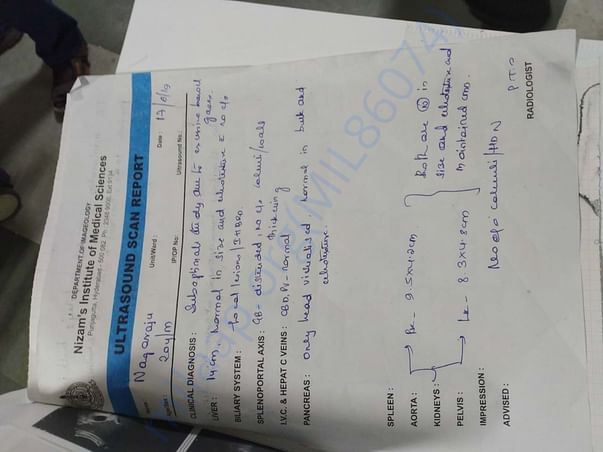 DEPARTMENT OF IMAGEOLOGY
Nizam's Institute of Medical Sciences
Punjagutta, Hyderabad - 500 082.
ULTRASOUND SCAN REPORT
Name Nagaraju Unit/Ward : Date : 17/6/19
20y/M IP/OP No: Ultrasound No.:
CLINICAL DIAGNOSIS : Suboptimal study due to excessive bowel gases.
LIVER : 14cm, normal in size and echotexture c no e/o
BILIARY SYSTEM : focal lesions / IHBRD
SPLENOPORTAL AXIS : GB - distended, no e/o calculi/walls
thickening
I.V.C. & HEPATIC VEINS : CBD, PV - normal
PANCREAS : Only head visualised, normal in bulk and
echotexture.
SPLEEN :
AORTA : Rk - 9.5x4.2cm
KIDNEYS : Both are N in
size and echotexture and
PELVIS : Lk - 8.3x4.8cm maintained CMD
IMPRESSION : No e/o calculi/HDN
ADVISED : P.T.O
RADIOLOGIST